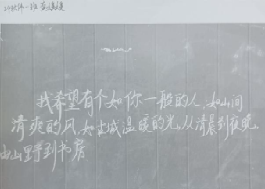 我希望有个如你一般的人,如山间
清爽的风,如古城温暖的光,从清晨到夜晚,
由山野到书房